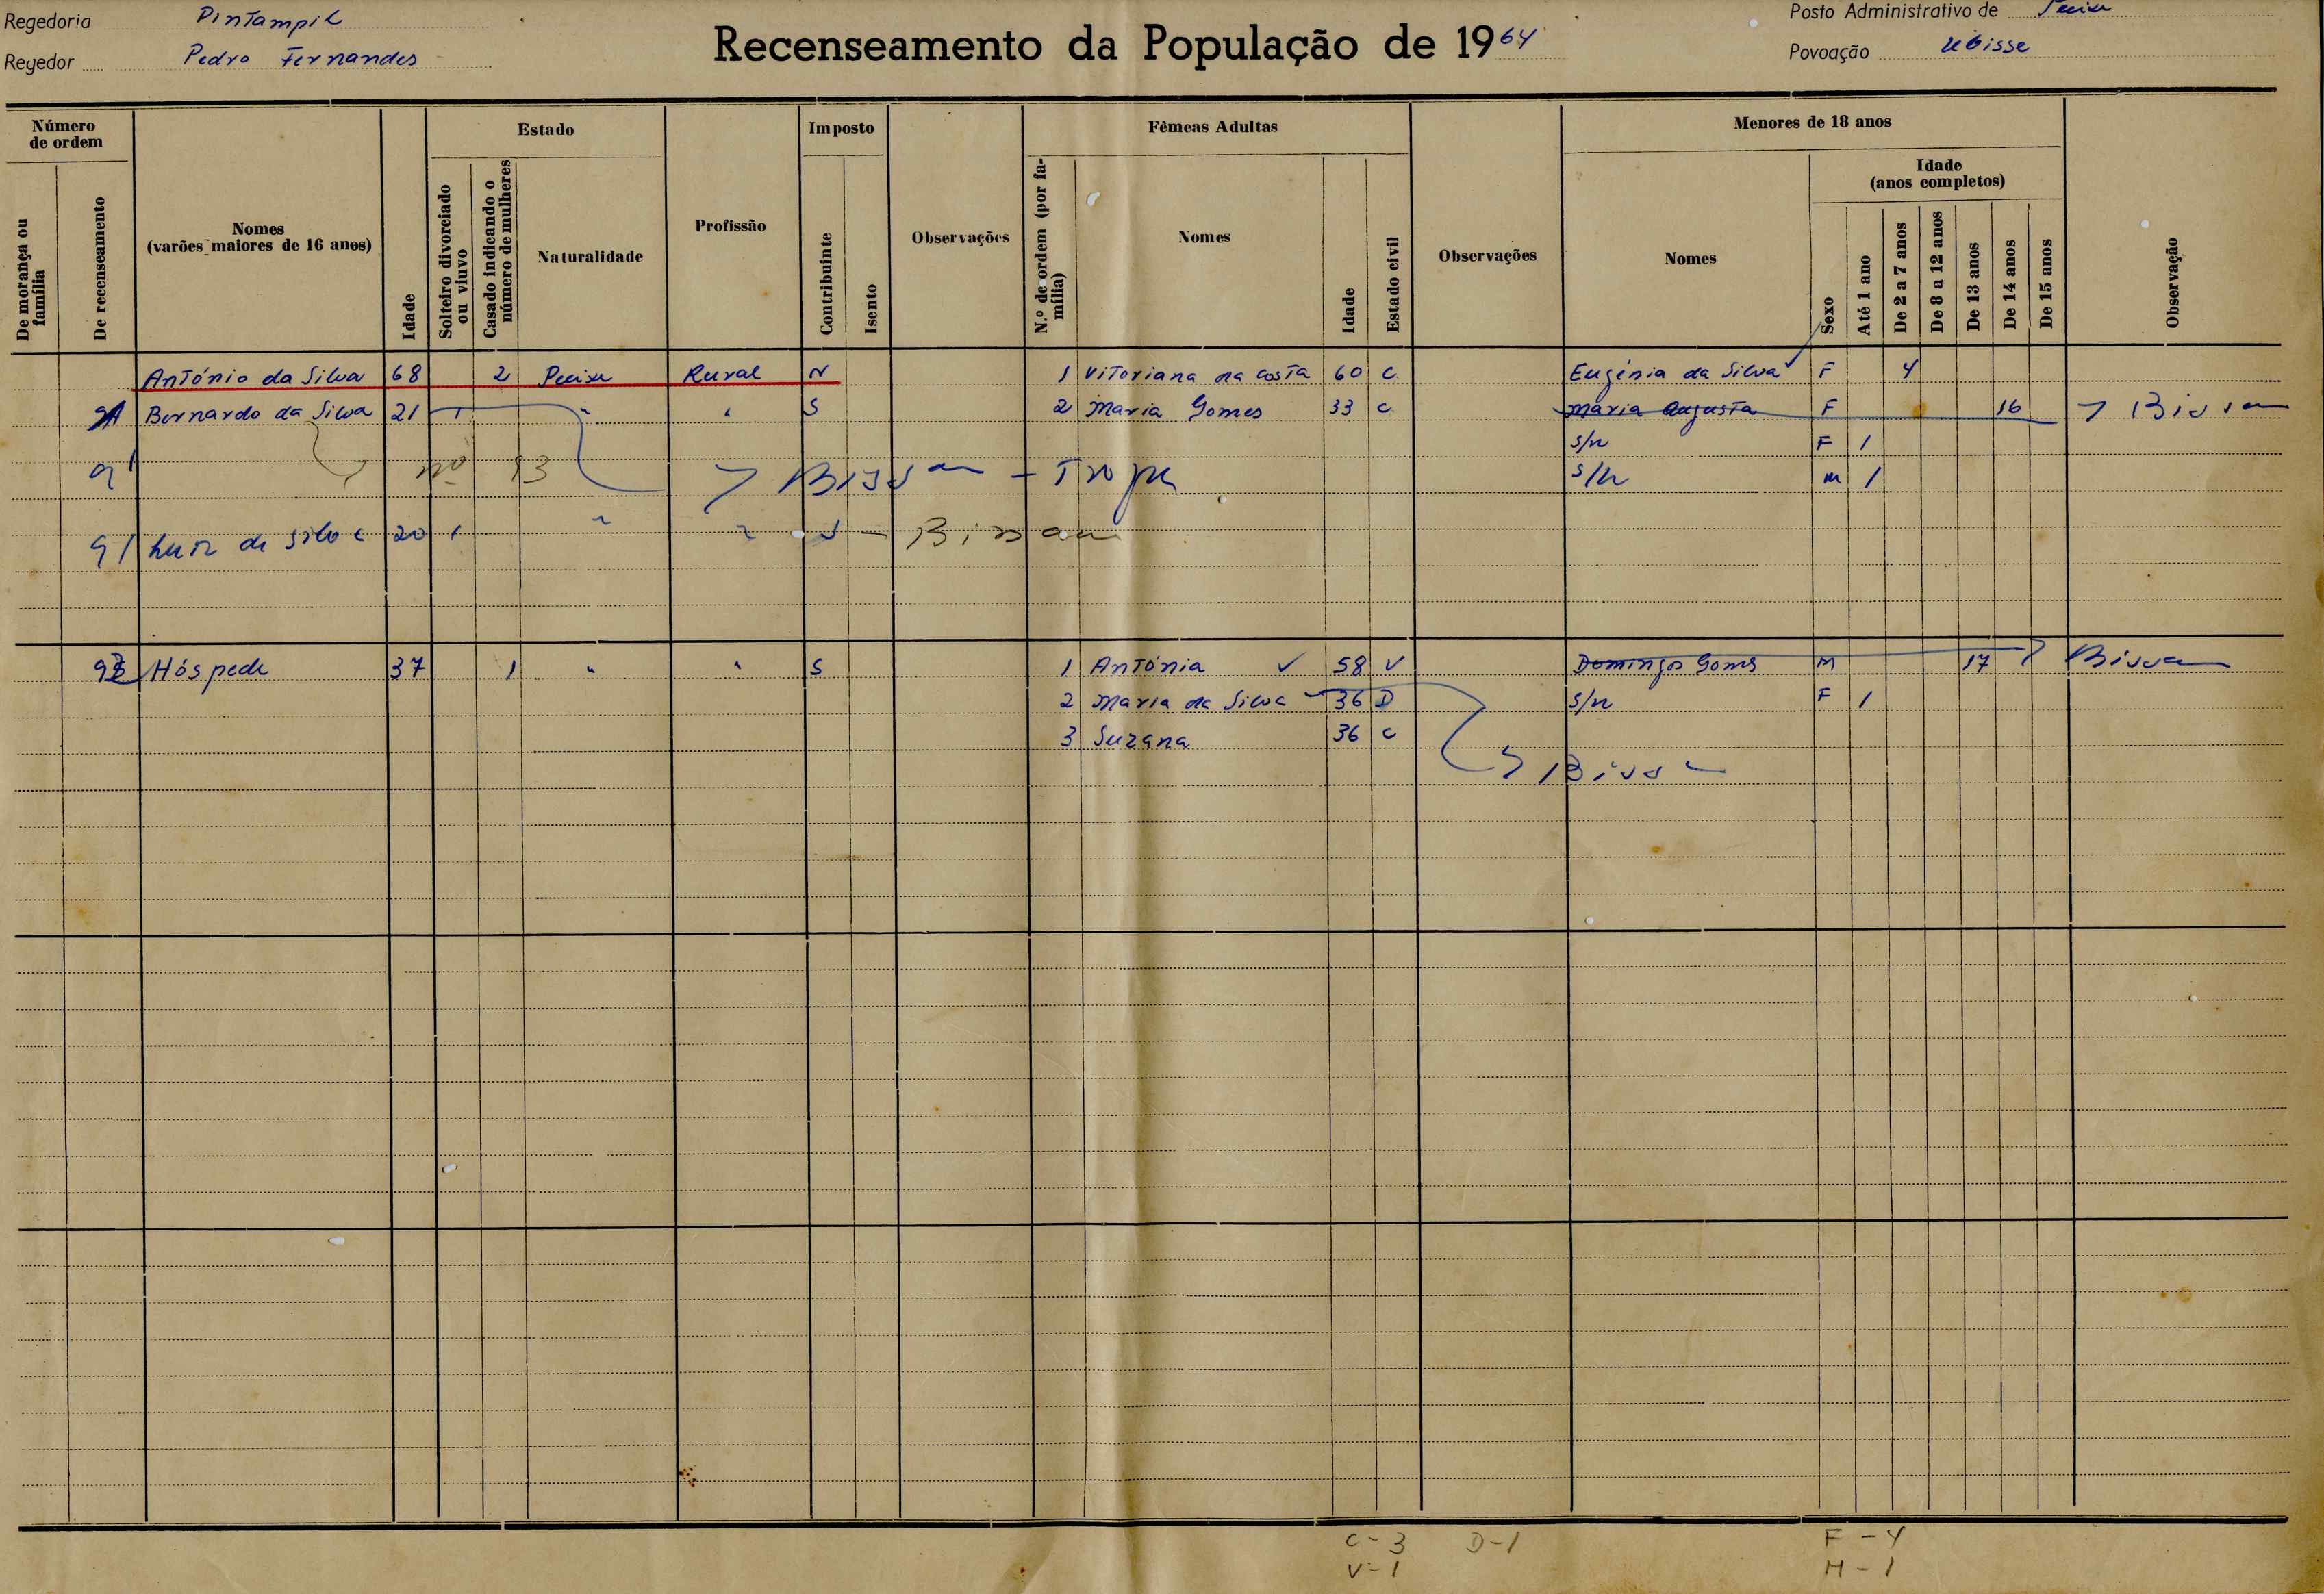 Regedoria Pintampil
Regedor Pedro Fernandes
Recenseamento da População de 1964
Posto Administrativo de Pecixe
Povoação Ubisse
Número de ordem
De morança ou família
De recenseamento
Nomes (varões maiores de 16 anos)
Idade
Estado
Solteiro divorciado ou viuvo
Casado indicando o número de mulheres
Naturalidade
Profissão
Imposto
Contribuinte
Isento
Observações
Fêmeas Adultas
N.º de ordem (por família)
Nomes
Idade
Estado civil
Observações
Menores de 18 anos
Nomes
Sexo
Idade (anos completos)
Até 1 ano
De 2 a 7 anos
De 8 a 12 anos
De 13 anos
De 14 anos
De 15 anos
Observação
António da Silva 68 2 Pecixe Rural N 1 Vitoriana da Costa 60 C Eugénia da Silva F 4
91 Bernardo da Silva 21 1 " " S 2 Maria Gomes 33 C Maria Augusta F 16 Bissau
S/n F 1
91 nº 93 Bissau - Tropa S/n M 1
91 Luiz da Silva 20 1 " " S - Bissau
93 Hóspede 37 1 " " S 1 Antónia 58 V Domingos Gomes M 17 Bissau
2 Maria da Silva 36 D S/n F 1
3 Suzana 36 C
Bissau
C-3 D-1 F-4
V-1 M-1